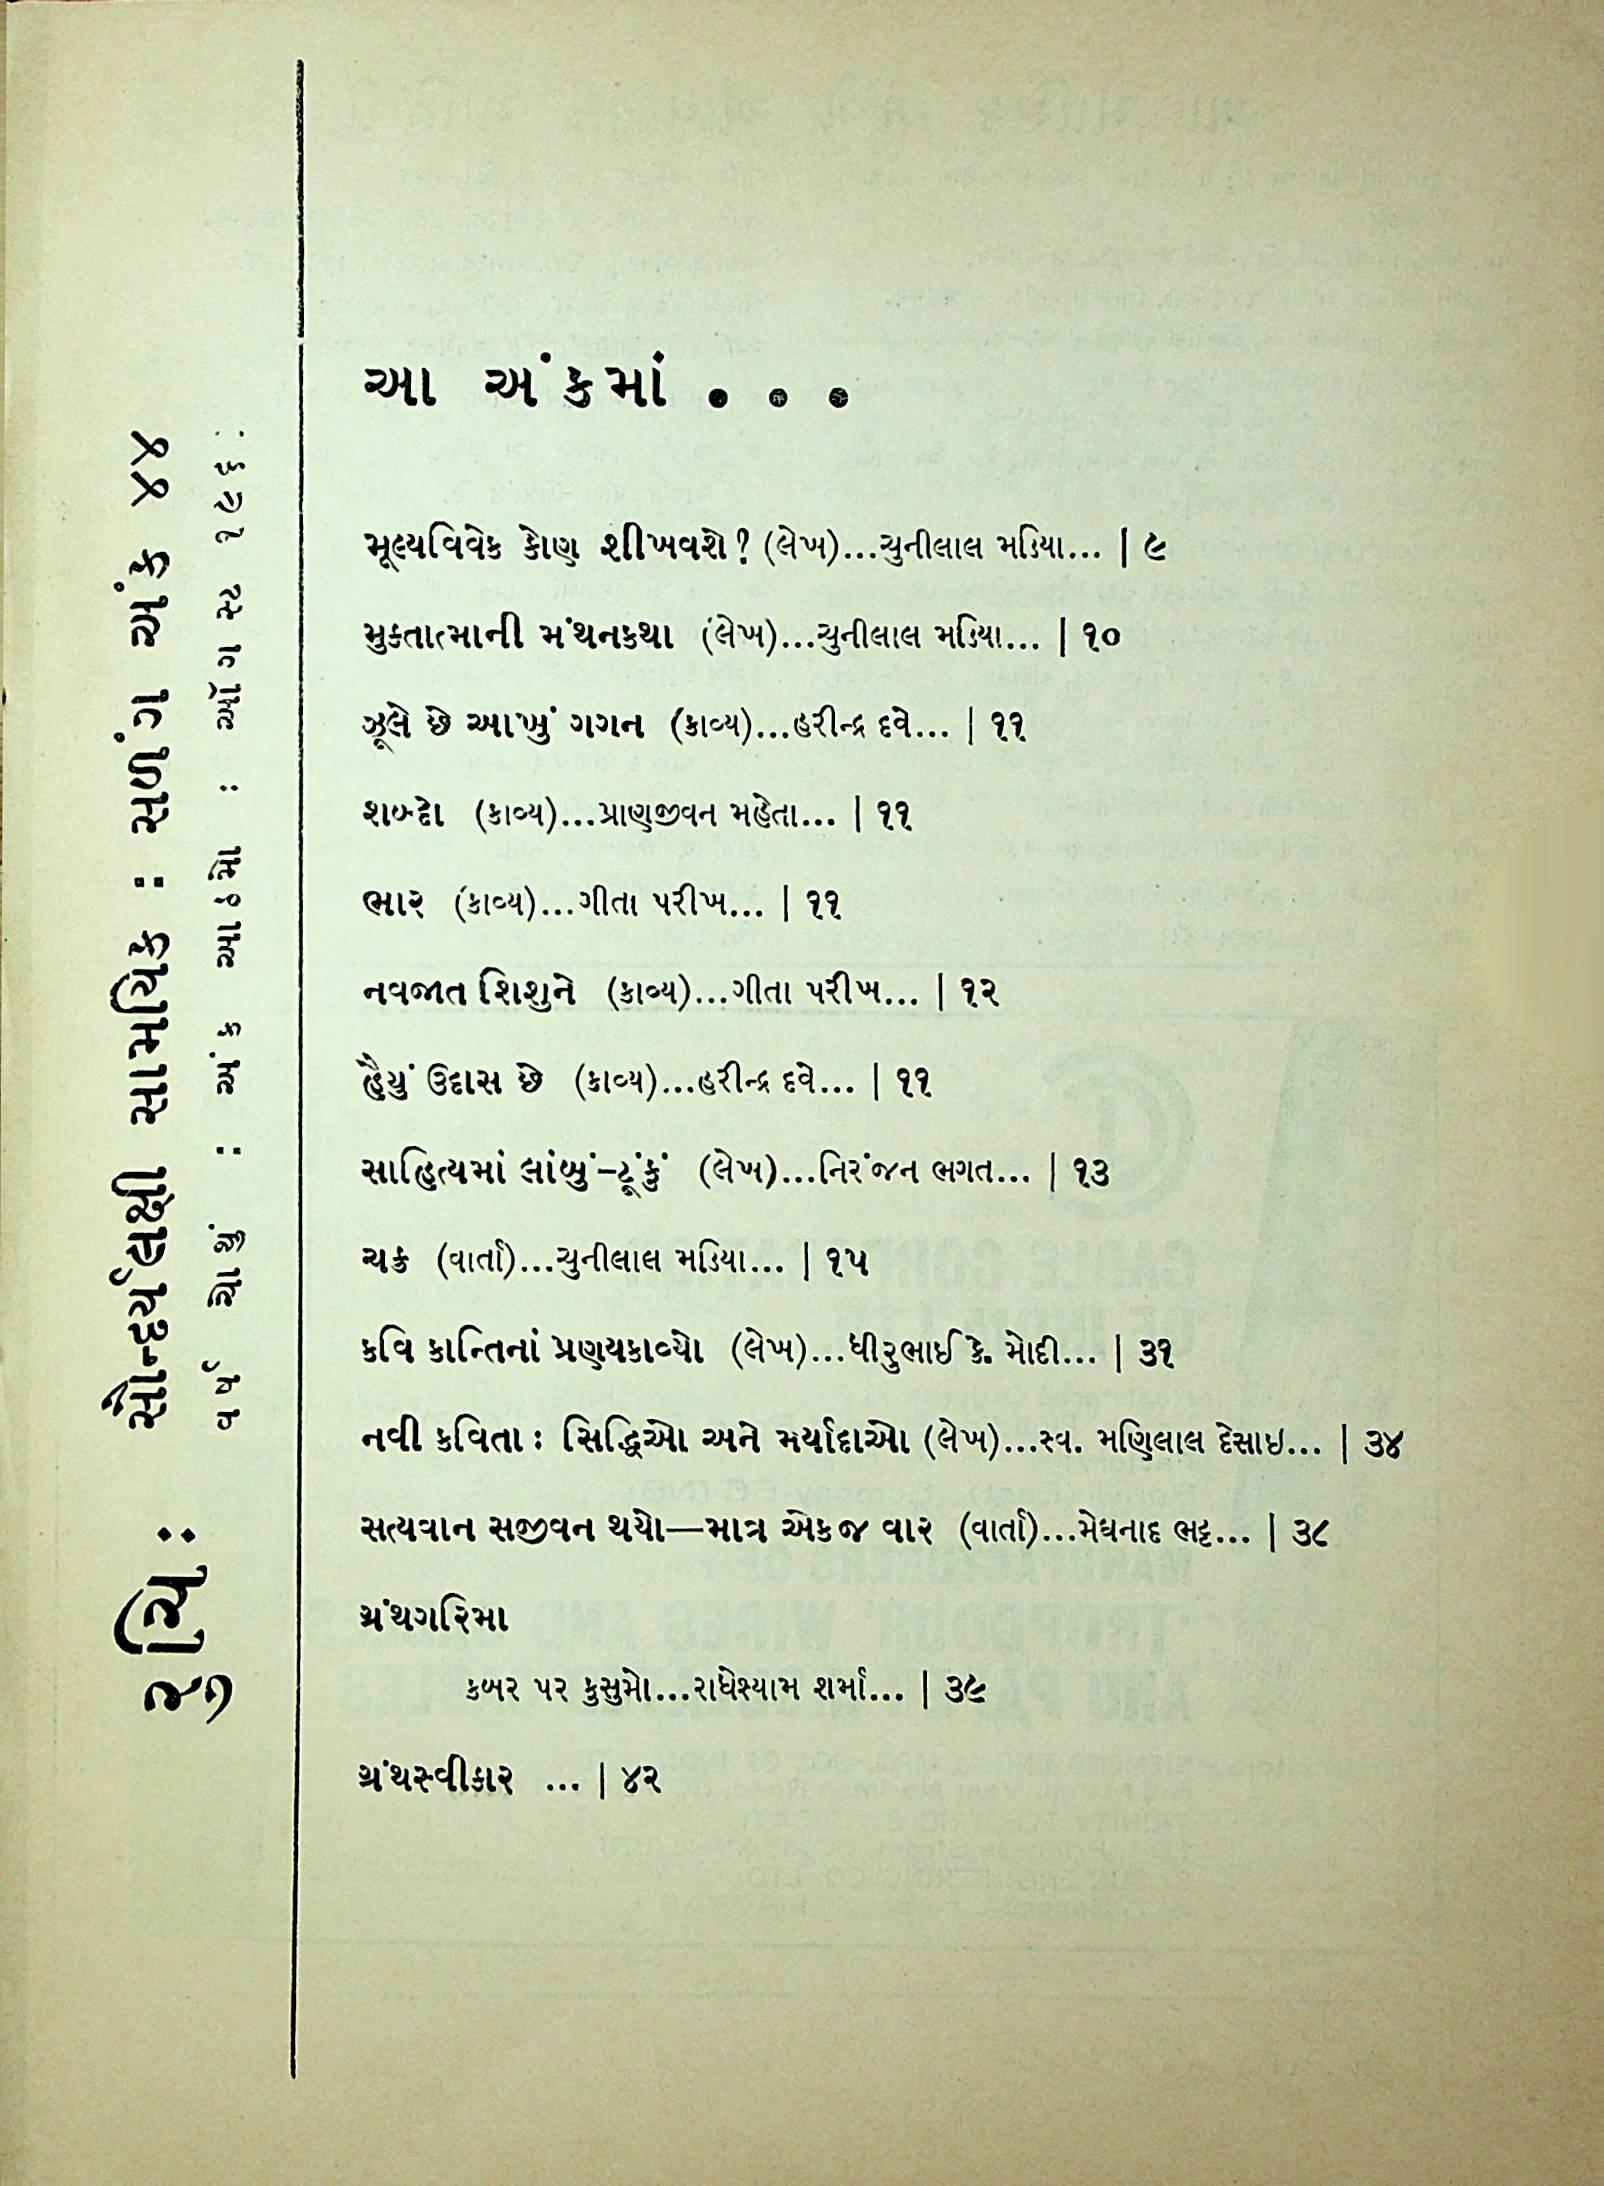 રુચિ : સૌન્દર્યલક્ષી સામયિક : સળંગ અંક ૪૪
વર્ષ ચોથું : અંક આઠમો : ઑગસ્ટ
આ અંકમાં . . .
મૂલ્યવિવેક કોણ શીખવશે? (લેખ)...ચુનીલાલ મડિયા... | ૯
મુક્તાત્માની મંથનકથા (લેખ)...ચુનીલાલ મડિયા... | ૧૦
ઝૂલે છે આખું ગગન (કાવ્ય)...હરીન્દ્ર દવે... | ૧૧
શબ્દો (કાવ્ય)...પ્રાણજીવન મહેતા... | ૧૧
ભાર (કાવ્ય)...ગીતા પરીખ... | ૧૧
નવજાત શિશુને (કાવ્ય)...ગીતા પરીખ... | ૧૨
હૈયું ઉદાસ છે (કાવ્ય)...હરીન્દ્ર દવે... | ૧૧
સાહિત્યમાં લાંબું-ટૂંકું (લેખ)...નિરંજન ભગત... | ૧૩
ચક્ર (વાર્તા)...ચુનીલાલ મડિયા... | ૧૫
કવિ કાન્તિનાં પ્રણયકાવ્યો (લેખ)...ધીરુભાઈ કે. મોદી... | ૩૧
નવી કવિતા : સિદ્ધિઓ અને મર્યાદાઓ (લેખ)...સ્વ. મણિલાલ દેસાઇ... | ૩૪
સત્યવાન સજીવન થયો—માત્ર એકજ વાર (વાર્તા)...મેઘનાદ ભટ્ટ... | ૩૮
ગ્રંથગરિમા
કબર પર કુસુમો...રાધેશ્યામ શર્મા... | ૩૯
ગ્રંથસ્વીકાર ... | ૪૨